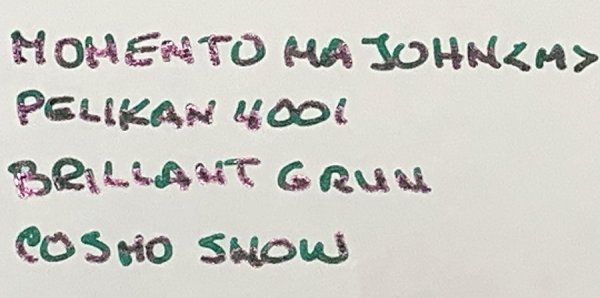 MOMENTO MAJOHN<M>
PELIKAN 4001
BRILLANT GRUN
COSMO SNOW